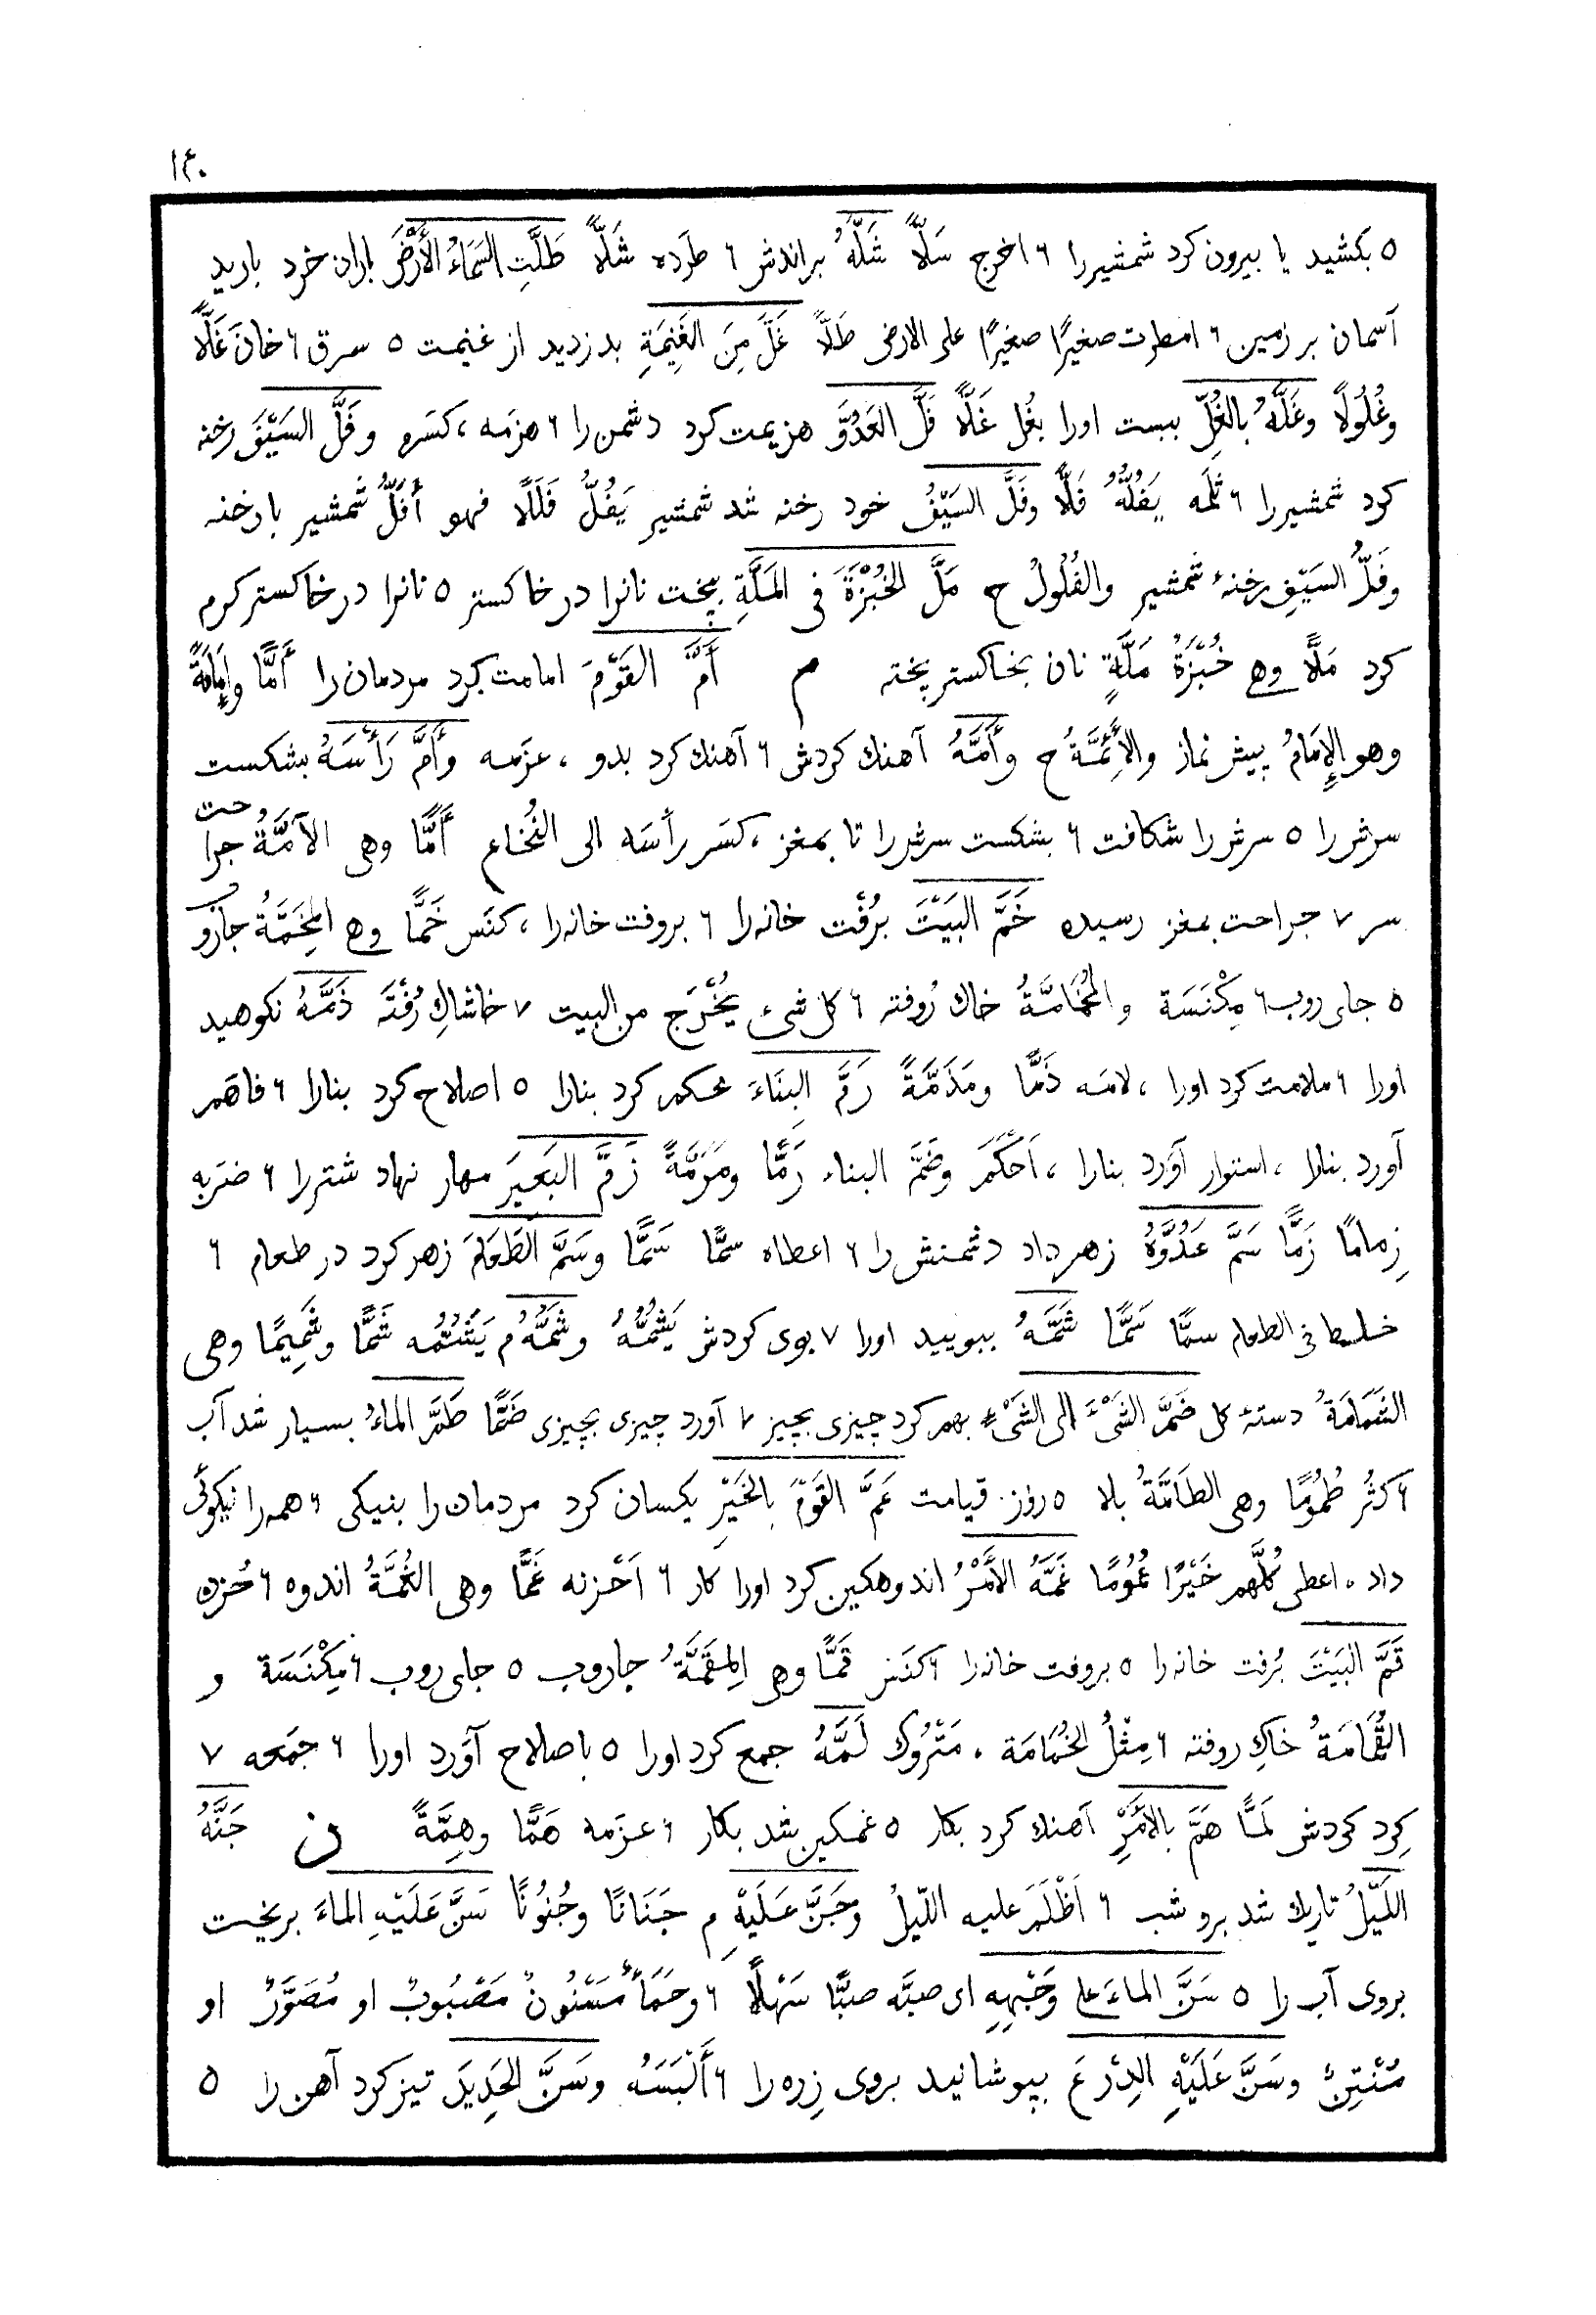 ۱۴۰
٥ بکشید یا بیرون کرد شمشیررا ٦ اخرج سَلًّا شَلَّهُ براندش ٦ طَرَده شَلًّا طَلَّتِ السَّمَاءُ الأَرْضَ باران خرد بارید
آسمان بر زمین ٦ امطرت صغیرًا صغیرًا علی الارض طَلًّا غَلَّ مِنَ الغَنِیمَةِ بدزدید از غنیمت ٥ سرق ٦ خانَ غَلًّا
وغُلُولًا وغَلَّهُ بالغُلِّ ببست اورا بغُل غَلًّا فَلَّ العَدُوَّ هزیمت کرد دشمن را ٦ هزمه ، کسَره وفَلَّ السَیْفَ رخنه
کرد شمشیررا ٦ ثلَمه یَفُلُّهُ فَلًّا وفَلَّ السَیْفُ خود رخنه شد شمشیر یَفُلُّ فَلَلًا فهو أَفَلُّ شمشیر با رخنه
وفَلُّ السَیْفِ رخنهٔ شمشیر والفُلُولُ ح مَلَّ الخُبْزَةَ فی المَلَّةِ بپخت نانرا در خاکستر ٥ نانرا در خاکستر گرم
کرد مَلًّا وهی خُبْزَةُ مَلَّةٍ نان بخاکستر پخته م أَمَّ القَوْمَ امامت کرد مردمان را أَمًّا وإِمَامَةً
وهو الإِمَامُ پیش نماز والأَئِمَّةُ ح وأَمَّهُ آهنك کردش ٦ آهنك کرد بدو ، عزَمه وأَمَّ رَأْسَهُ بشکست
سرش را ٥ سرش را شکافت ٦ بشکست سرش را تا بمغز ، کسَر رأسَه الی النُخاع أَمًّا وهی الآمَّةُ جراحت
سر ٧ جراحت بمغز رسیده خَمَّ البَیْتَ برُفْت خانه را ٦ بروفت خانه را ، کنَس خَمًّا وهی المِخَمَّةُ جارُو
٥ جای روب ٦ مِکْنَسَة والخُمَامَةُ خاك رُوفته ٦ کل شیء یُخْرَج من البیت ٧ خاشاكِ رُفْتَه ذَمَّهُ نکوهید
اورا ٦ ملامت کرد اورا ، لامَه ذَمًّا ومَذَمَّةً رَمَّ البِنَاءَ محکم کرد بنارا ٥ اصلاح کرد بنارا ٦ فاهَم
آورد بنارا ، استوار آوَرد بنارا ، اَحْکَمَ وضَمَّ البناء رَمًّا ومَرَمَّةً زَمَّ البَعِیرَ مهار نهاد شتررا ٦ ضرَبه
زِمامًا زَمًّا سَمَّ عَدُوَّهُ زهر داد دشمنش را ٦ اعطاه سمًّا سَمًّا وسَمَّ الطَعَامَ زهر کرد در طعام ٦
خلط فی الطعام سمًّا سَمًّا شَمَّهُ ببویید اورا ٧ بوی کردش یَشُمُّهُ وشَمَّهُ م یَشُمُّه شَمًّا وشَمِیمًا وهی
الشَمَامَةُ دستهٔ گل ضَمَّ الشَیْءَ الی الشَیْءِ بهم کرد چیزی بچیز ٧ آورد چیزی بچیزی ضَمًّا طَمَّ الماءُ بسیار شد آب
٦ کثُر طُمُومًا وهی الطَامَّةُ بلا ٥ روز قیامت عَمَّ القَوْمَ بالخَیْرِ یکسان کرد مردمان را بنیکی ٦ همه را نیکوئی
داد ، اعطی کُلَّهم خَیْرًا عُمُومًا غَمَّهُ الأَمْرُ اندوهکین کرد اورا کار ٦ اَحْزنه غَمًّا وهی الغُمَّةُ اندوه ٦ حُزن
قَمَّ البَیْتَ برُفت خانه را ٥ بروفت خانه را ٦ کنَس قَمًّا وهی المِقَمَّةُ جاروب ٥ جای روب ٦ مِکْنَسَة و
القُمَامَةُ خاكِ روفته ٦ مِثْلُ الخُمَامَة ، مَتْرُوك لَمَّهُ جمع کرد اورا ٥ باصلاح آوَرد اورا ٦ جمَعه ٧
گِرد کردش لَمًّا هَمَّ بالأَمْرِ آهنك کرد بکار ٥ غمگین شد بکار ٦ عزَمه هَمًّا وهِمَّةً ن جَنَّهُ
اللَیْلُ تاریك شد برو شب ٦ اَظْلَمَ علیه اللَیلُ وجَنَّ عَلَیْهِ م جَنَانًا وجُنُونًا سَنَّ عَلَیْهِ الماءَ بریخت
بروی آب را ٥ سَنَّ الماءَ علی وَجْهِهِ ای صبَّه صبًّا سَهْلًا ٦ وحَمَأٌ مَسْنُونٌ مَصْبُوبٌ او مُصَوَّرٌ او
مُنْتِنٌ وسَنَّ عَلَیْهِ الدِرْعَ بپوشانید بروی زِره را ٦ أَلْبَسَهُ وسَنَّ الحَدِیدَ تیز کرد آهن را ٥